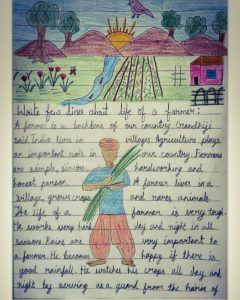 Write few lines about life of a farmer:
A farmer is a backbone of our country. Gandhiji
said India lives in villages. Agriculture plays
an important role in our country. Farmers
are simple, sincere hardworking and
honest person. A farmer lives in a
village, grows crops and rares animals.
The life of a farmer is very tough.
He works very hard day and night in all
seasons. Rains are very important to
a farmer. He becomes happy if there is
good rainfall. He watches his crops all day and
night by serving as a guard from the harm of